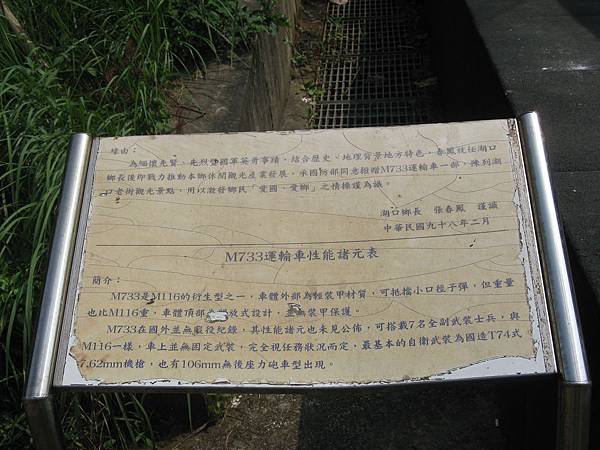 緣由：
為緬懷先賢、先烈暨國軍英勇事蹟，結合歷史、地理背景地方特色，春鳳就任湖口
鄉長後即戮力推動本鄉休閒觀光產業發展，承國防部同意捐贈M733運輸車一部，陳列湖
口老街觀光景點，用以激發鄉民「愛國、愛鄉」之情操謹為誌。
湖口鄉長 張春鳳 謹誌
中華民國九十八年二月
M733運輸車性能諸元表
簡介：
M733是M116的衍生型之一，車體外部為輕裝甲材質，可抵擋小口徑子彈，但重量
也比M116重，車體頂部 放式設計，並無裝甲保護。
M733在國外並無服役紀錄，其性能諸元也未見公佈，可搭載7名全副武裝士兵，與
M116一樣，車上並無固定武裝，完全視任務狀況而定，最基本的自衛武裝為國造T74式
7.62mm機槍，也有106mm無後座力砲車型出現。